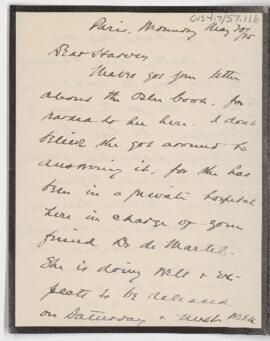 CUS4/7/57.11b
Paris. Monday May
Dear Harvey
got your letter
about the Osler book, for-
warded to her here. I don't
believe she got around to
answering it, for she has
been in a private hospital
here in charge of your
friend Dr de Martel.
She is doing well & ex-
pects to be released
on Saturday & next week